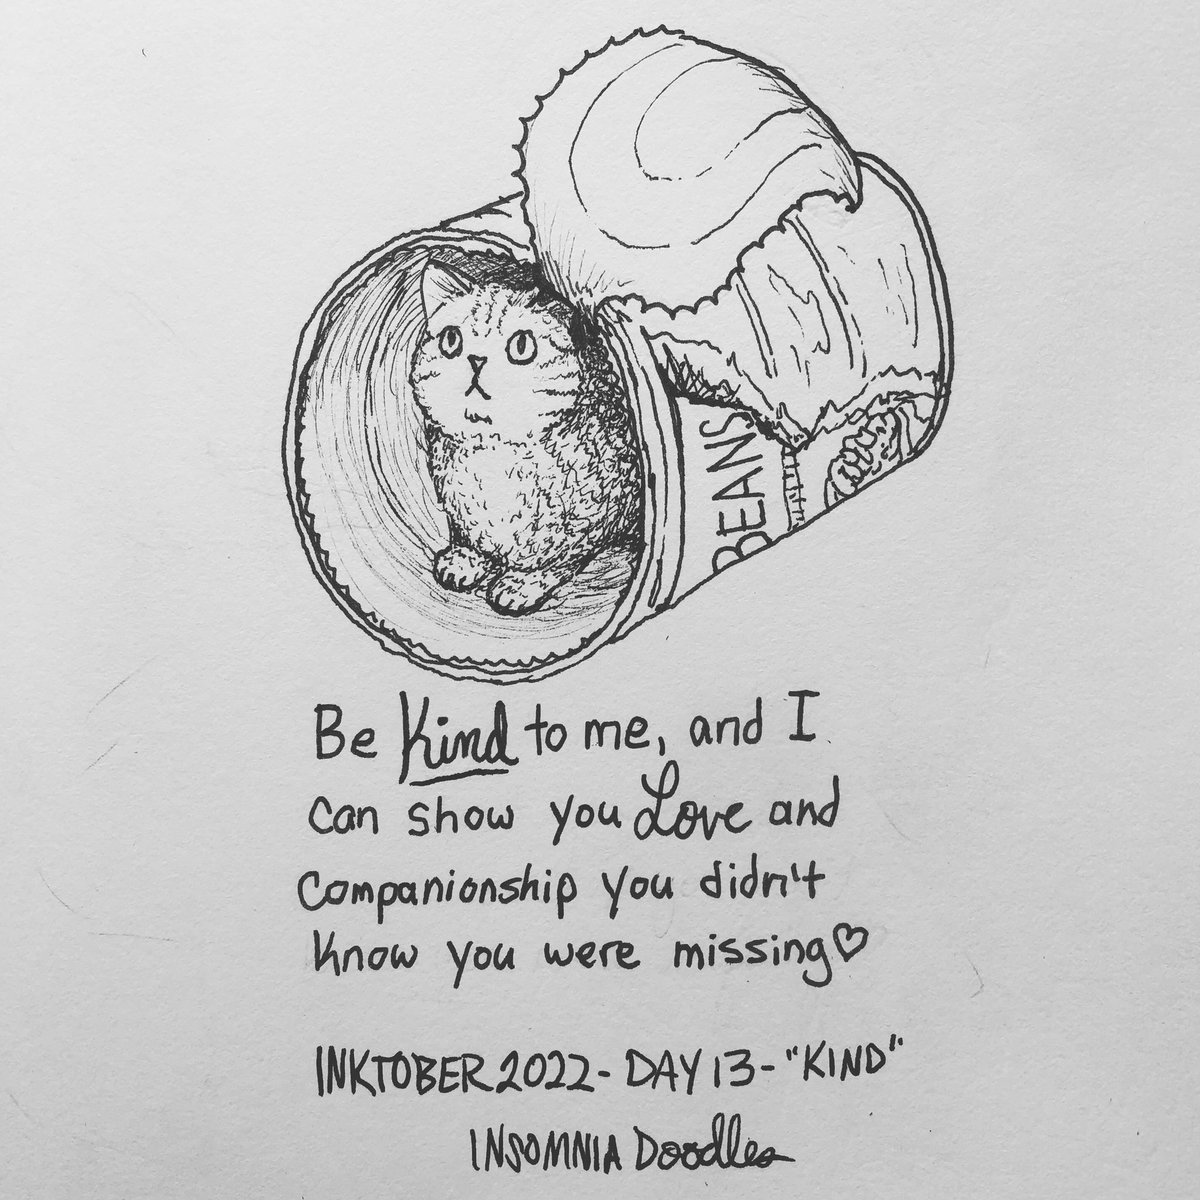 BEANS
Be Kind to me, and I
can show you Love and
Companionship you didn't
know you were missing♡
INKTOBER 2022 - DAY 13 - "KIND"
INSOMNIA Doodles